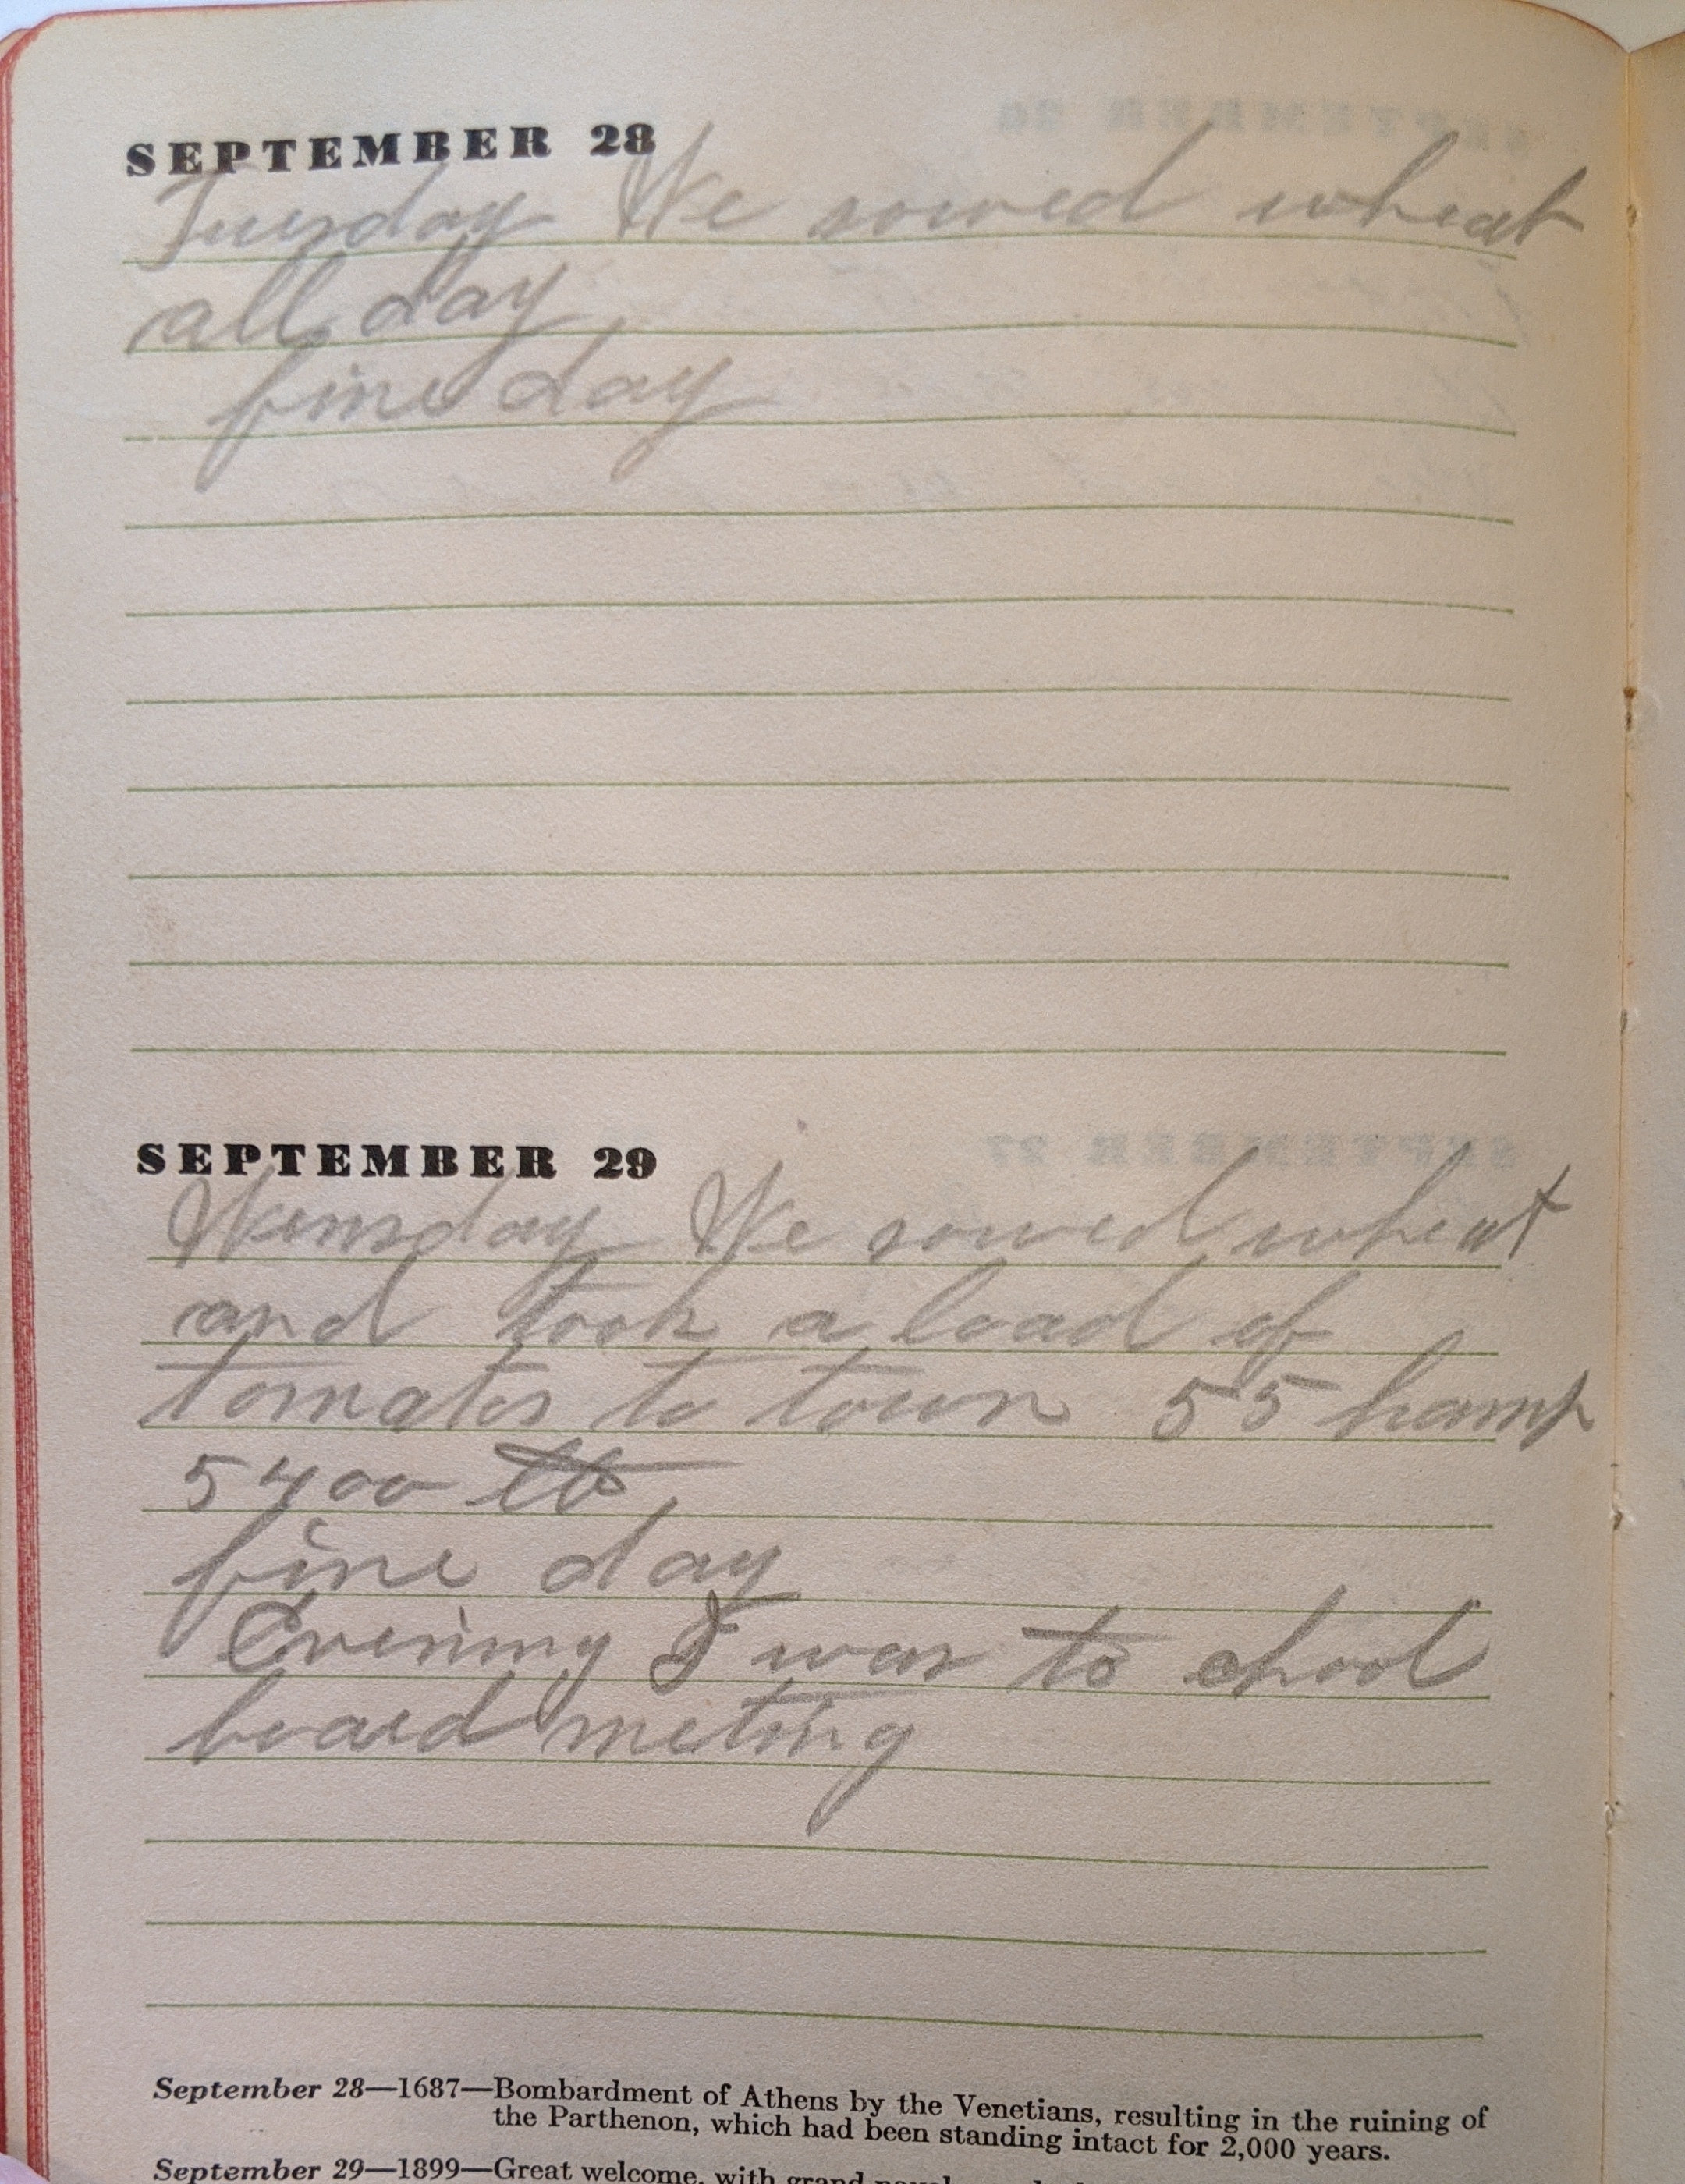 SEPTEMBER 28
Tuesday We sowed wheat
all day
fine day
SEPTEMBER 29
Wensday We sowed wheat
and took a load of
tomatos to town 55 hamp
5400 lb
fine day
Evening I was to chool
board meting
September 28—1687—Bombardment of Athens by the Venetians, resulting in the ruining of
the Parthenon, which had been standing intact for 2,000 years.
September 29—1899—Great welcome, with grand naval